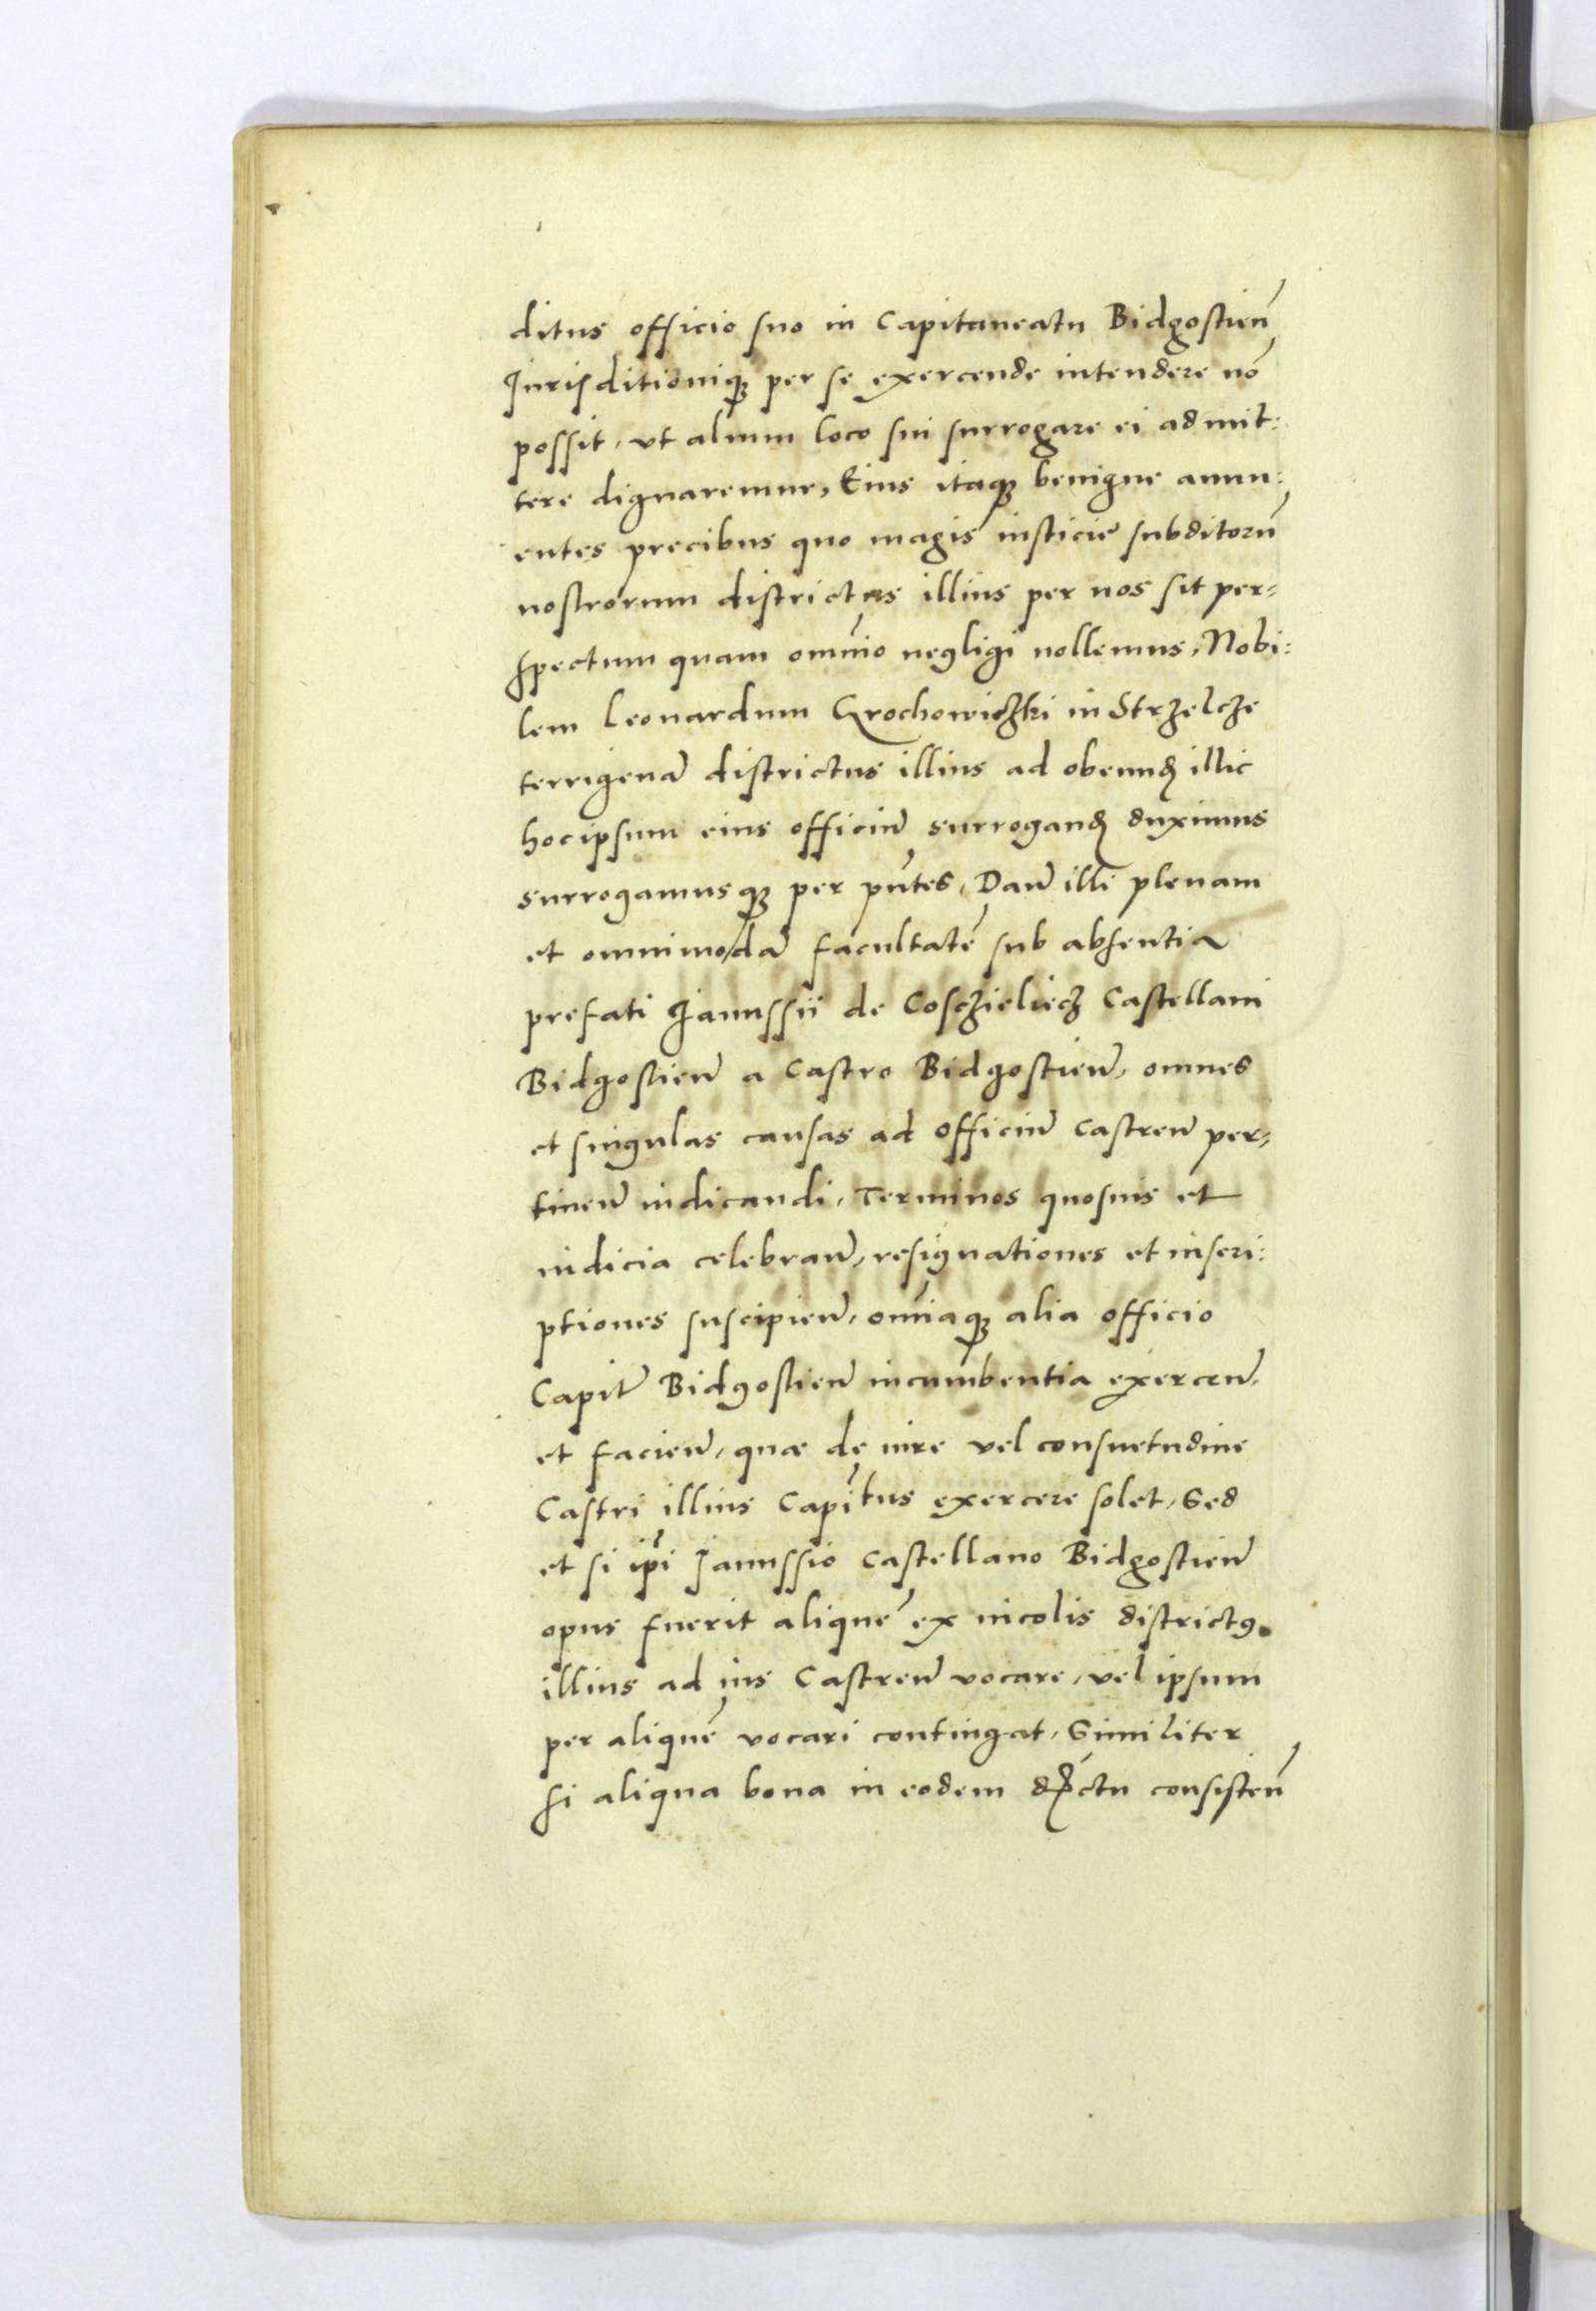 ditus officio suo in Capitaneatu Bidgostien̄
Jurisditioniqꝫ per se exercende intendere nō
possit, vt alium loco sui surrogare ei admit:
tere dignaremur, Eius itaqꝫ benigne annu:
entes precibus quo magis iusticie subditorū
nostrorum districtus illius per nos sit per-
spectum quam omn̄io negligi nollemus, Nobi:
lem Leonardum Grochowiczki in Strzelcze
terrigenā districtus illius ad obeund illic
hoc ipsum eius officiū surrogand duximus
surrogamusqꝫ per pn̄tes, Dan̄ illi plenam
et omnimodā facultatē sub absentia
prefati Janussii de Cosczieliecz Castellani
Bidgostien̄ a Castro Bidgostien̄, omnes
et singulas causas ad officiū castren̄ per-
tinen̄ iudicandi, Terminos quosuis et
iudicia celebran̄, resignationes et inscri:
ptiones suscipien̄, omīaqꝫ alia officio
Capit̄ Bidgostien̄ incumbentia exercen̄,
et facien̄, quæ de iure vel consuetudine
Castri illius Capit̄us exercere solet, Sed
et si ip̄i Janussio Castellano Bidgostien̄
opus fuerit aliquē ex incolis districtꝯ
illius ad ius Castren̄ vocare, vel ipsum
per aliquē vocari contingat, Similiter
si aliqua bona in eodem dr̄ctu consisten̄